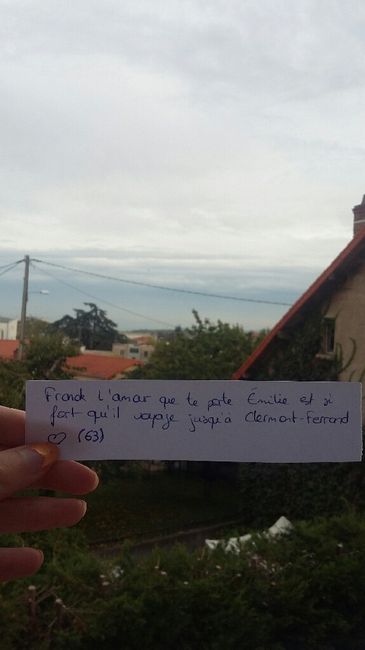 Franck l'amour que te porte Émilie est si
fort qu'il voyage jusqu'à Clermont-Ferrand
♡ (63)